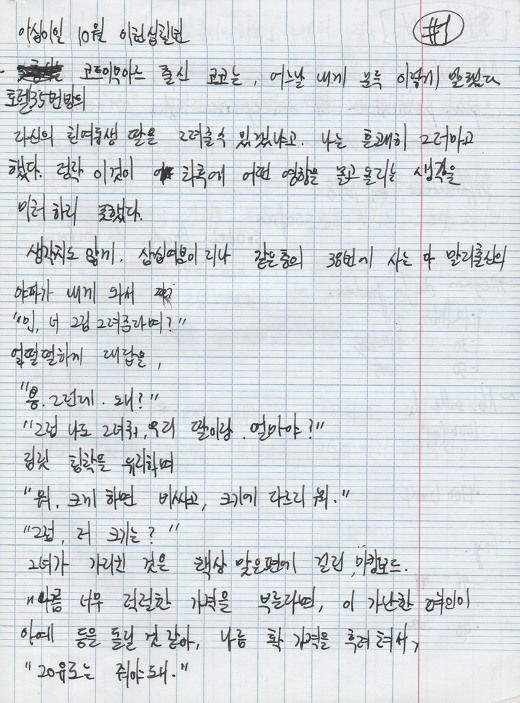 #1
이십이일 10월 이천십칠년
코트디부아르 출신 코코는, 어느날 내게 문득 이렇게 말했다
호텔 35번방의
자신의 친여동생 딸을 그려줄수 있겠냐고. 나는 흔쾌히 그러마고
했다. 덜컥 이것이 차후에 어떤 영향을 몰고올리는 생각을
미처 하지 못했다.
생각지도 않게. 삼십여분이 지나 같은층의 38번에 사는 마 말리출신의
야파가 내게 와서
"인, 너 그림 그려준다며?"
얼떨떨하게 대답을,
"응. 그런데. 왜?"
"그럼 나도 그려줘, 우리 딸이랑. 얼마야?"
짐짓 침착을 유지하며
"뭐, 크게 하면 비싸고, 크기에 다르지 뭐."
"그럼, 저 크기는?"
그녀가 가리킨 것은 책상 맞은편에 걸린, 마킹보드.
너무 적절한 가격을 부른다면, 이 가난한 여인이
아예 등을 돌릴 것 같아, 나름 확 가격을 후려쳐서,
"20유로는 줘야돼."